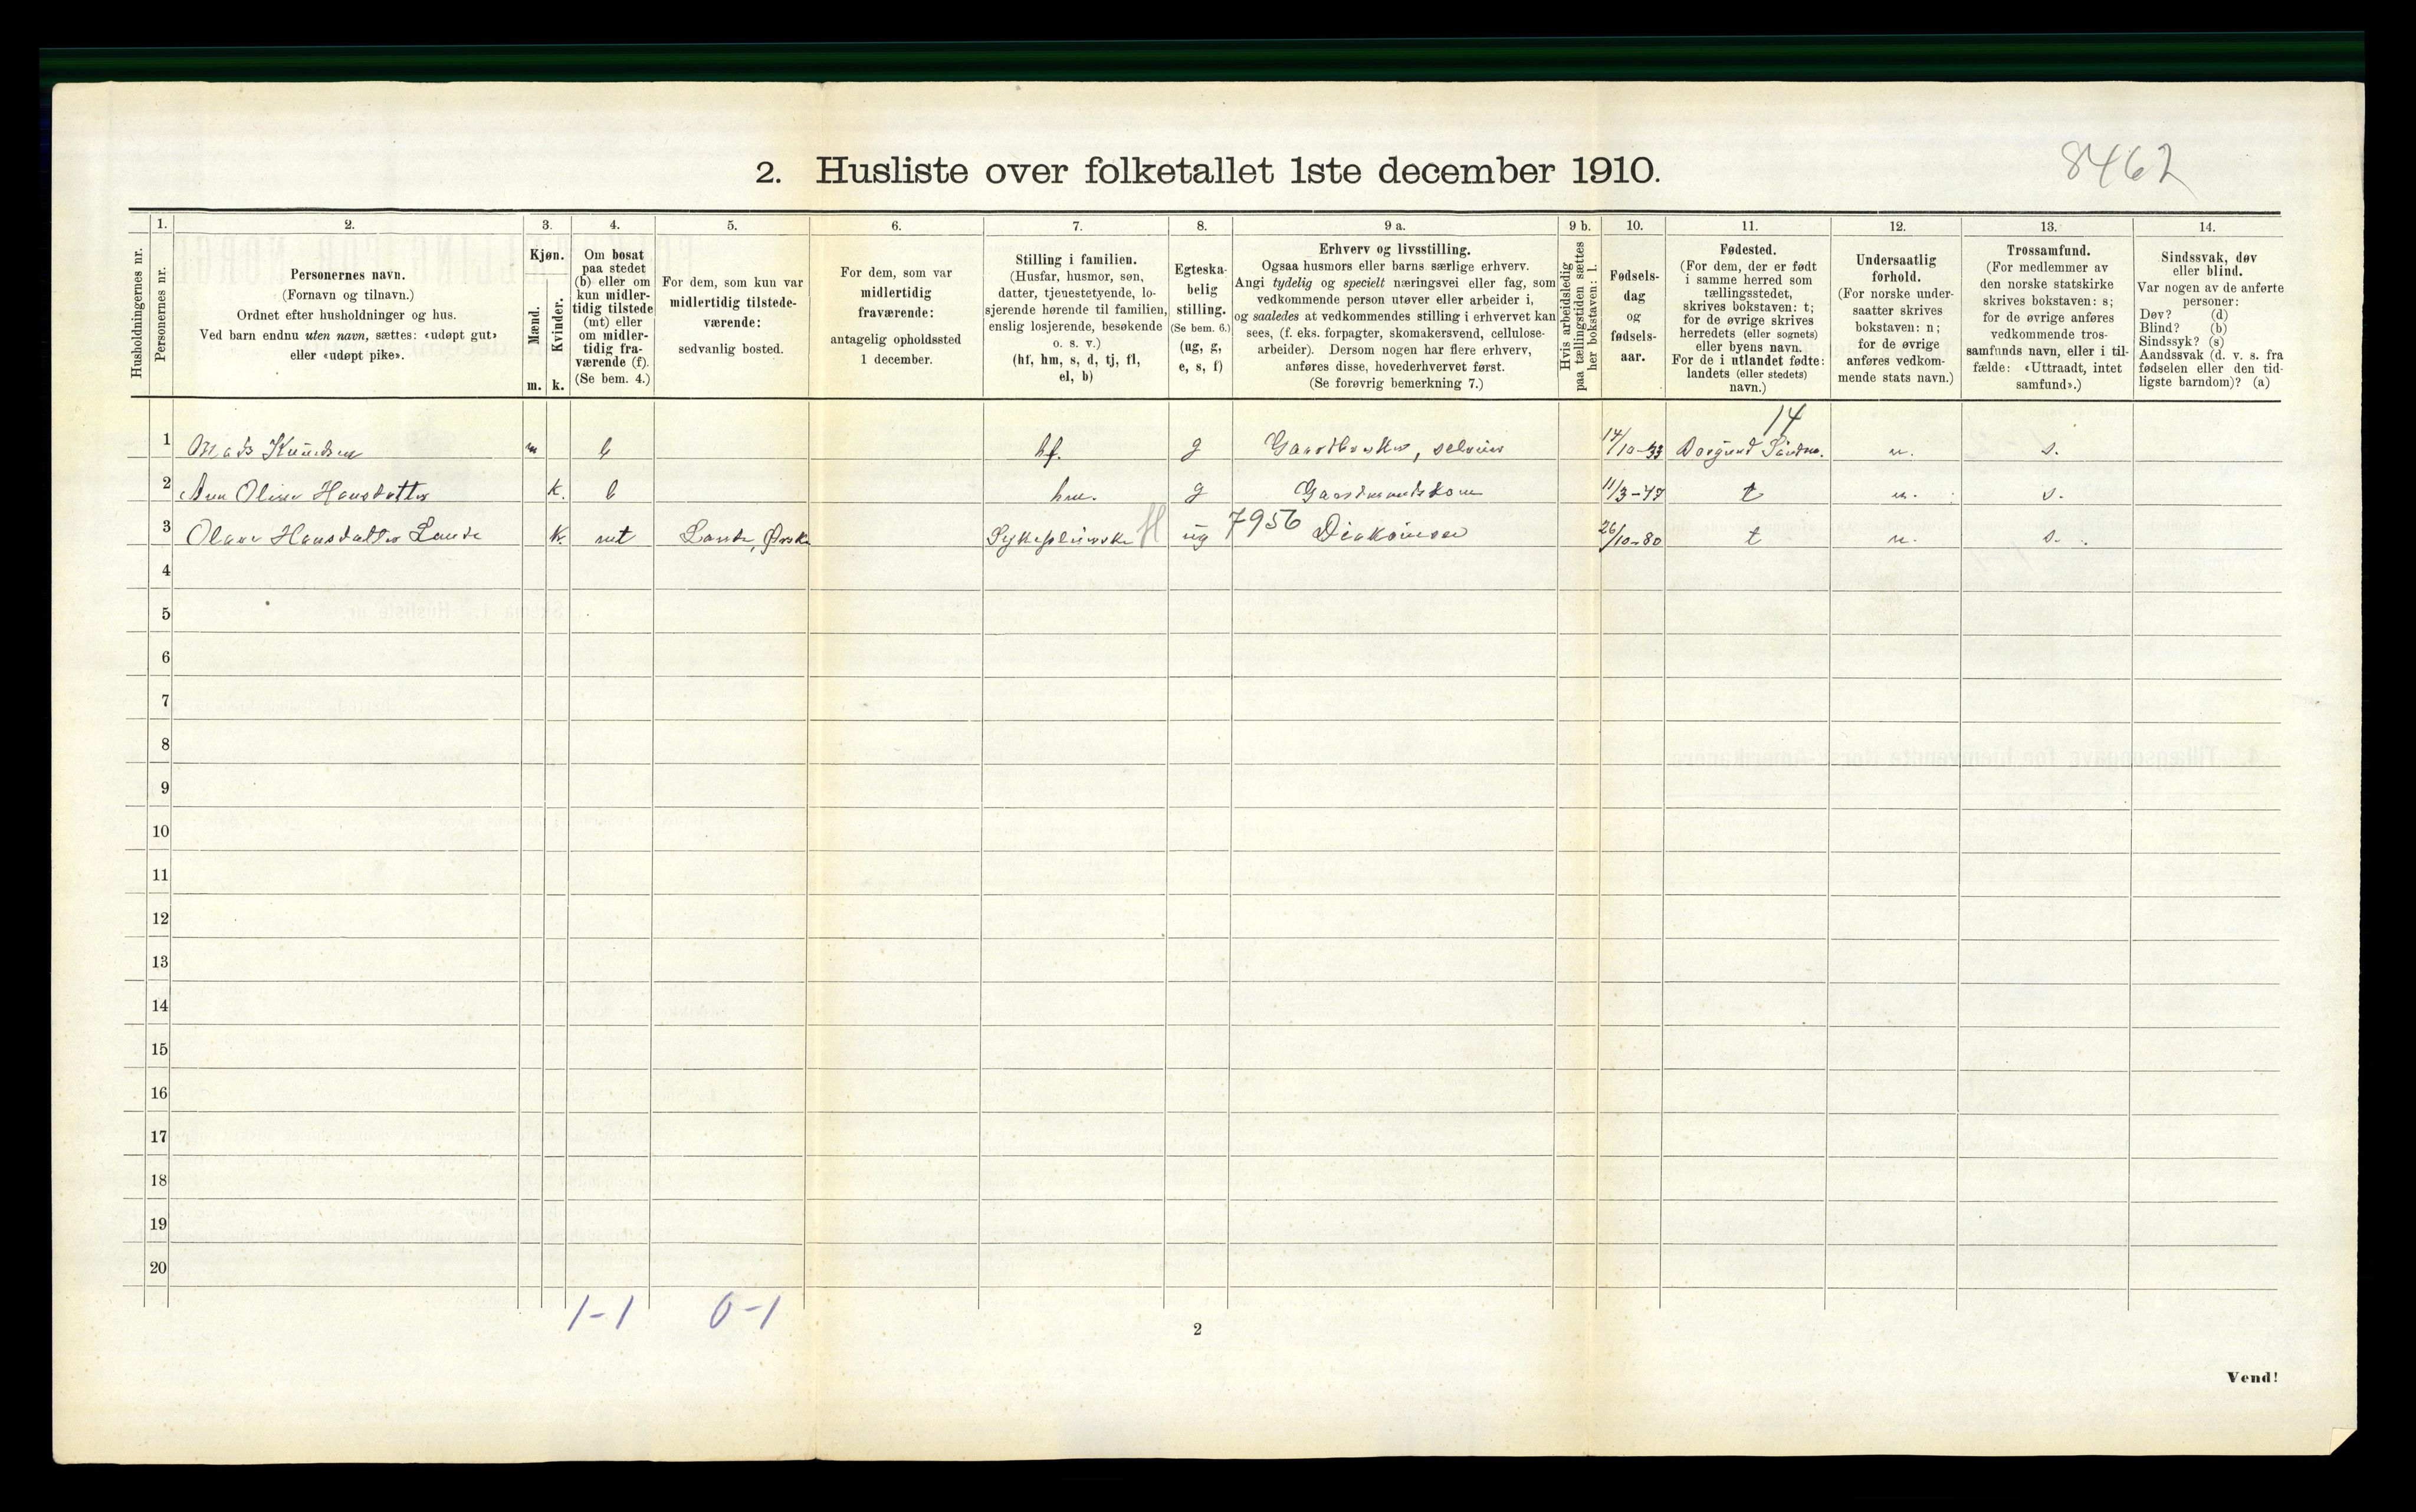 8462
2. Husliste over folketallet 1ste december 1910.
Husholdningernes nr.
1.
Personernes nr.
2.
Personernes navn.
(Fornavn og tilnavn.)
Ordnet efter husholdninger og hus.
Ved barn endnu uten navn, sættes: «udøpt gut»
eller «udøpt pike».
3.
Kjøn.
Mænd.
Kvinder.
m. k.
4.
Om bosat
paa stedet
(b) eller om
kun midler-
tidig tilstede
(mt) eller
om midler-
tidig fra-
værende (f).
(Se bem. 4.)
5.
For dem, som kun var
midlertidig tilstede-
værende:
sedvanlig bosted.
6.
For dem, som var
midlertidig
fraværende:
antagelig opholdssted
1 december.
7.
Stilling i familien.
(Husfar, husmor, søn,
datter, tjenestetyende, lo-
sjerende hørende til familien,
enslig losjerende, besøkende
o. s. v.)
(hf, hm, s, d, tj, fl,
el, b)
8.
Egteska-
belig
stilling.
(Se bem. 6.)
(ug, g,
e, s, f)
9 a.
Erhverv og livsstilling.
Ogsaa husmors eller barns særlige erhverv.
Angi tydelig og specielt næringsvei eller fag, som
vedkommende person utøver eller arbeider i,
og saaledes at vedkommendes stilling i erhvervet kan
sees, (f. eks. forpagter, skomakersvend, cellulose-
arbeider). Dersom nogen har flere erhverv,
anføres disse, hovederhvervet først.
(Se forøvrig bemerkning 7.)
9 b.
Hvis arbeidsledig
paa tællingstiden sættes
her bokstaven: l.
10.
Fødsels-
dag
og
fødsels-
aar.
11.
Fødested.
(For dem, der er født
i samme herred som
tællingsstedet,
skrives bokstaven: t;
for de øvrige skrives
herredets (eller sognets)
eller byens navn.
For de i utlandet fødte:
landets (eller stedets)
navn.)
12.
Undersaatlig
forhold.
(For norske under-
saatter skrives
bokstaven: n;
for de øvrige
anføres vedkom-
mende stats navn.)
13.
Trossamfund.
(For medlemmer av
den norske statskirke
skrives bokstaven: s;
for de øvrige anføres
vedkommende tros-
samfunds navn, eller i til-
fælde: «Uttraadt, intet
samfund».)
14.
Sindssvak, døv
eller blind.
Var nogen av de anførte
personer:
Døv? (d)
Blind? (b)
Sindssyk? (s)
Aandssvak (d. v. s. fra
fødselen eller den tid-
ligste barndom)? (a)
14
1 Mads Knudsen m b hf. g Gaardbruker, selveier 14/10-33 Borgund Søndm. n. s.
2 Ane Oline Hansdatter k. b hm. g Gaardmandskone 11/3-47 t n. s.
3 Olave Hansdatter Lande k. mt Lande, Ørsk Sykepleierske H ug 7956 Diakonisse 26/10-80 t n. s.
4
5
6
7
8
9
10
11
12
13
14
15
16
17
18
19
20
1-1 0-1
2
Vend!